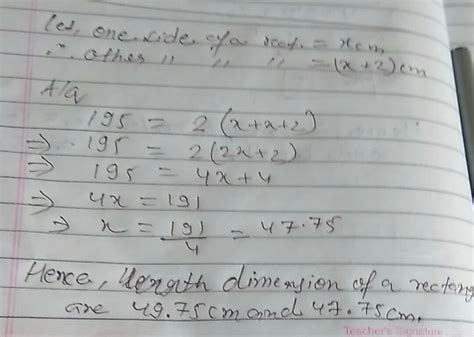 Let, one side of a rect. = x cm
∴ other " " " = (x+2) cm
A/q
195 = 2 (x+x+2)
⇒ 195 = 2(2x+2)
⇒ 195 = 4x+4
⇒ 4x = 191
⇒ x = 191/4 = 47.75
Hence, length dimension of a rectang
are 49.75cm and 47.75cm.
Teacher's Signature